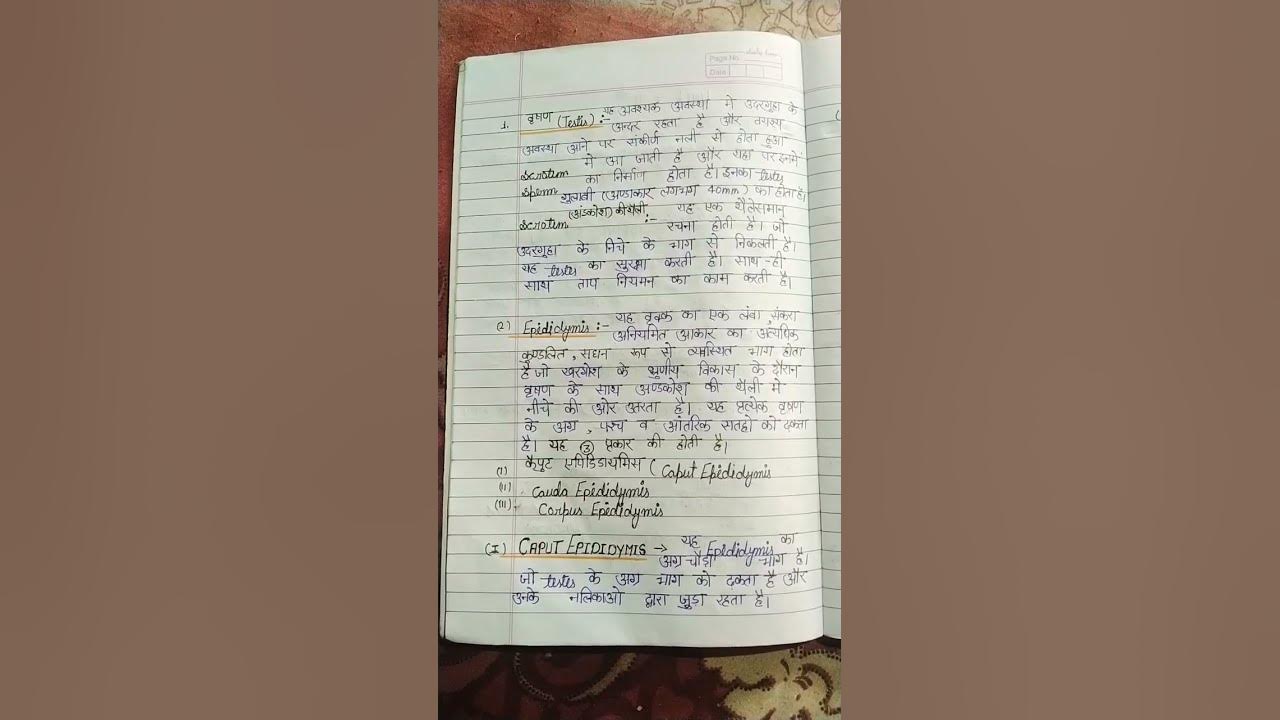 Page No.
Date
1. वृषण (Testis) :- यह अवश्यक अवस्था में उदरगुहा के
अन्दर रहता है और वयस्य
अवस्था आने पर संकीर्ण नली से होता हुआ
Scrotum में आ जाती है और यहां पर इनमें
Sperm का निर्माण होता है। इनका testes
गुलाबी (अण्डाकार लगभग 40mm) का होता है।
Scrotum (अंडकोश) की थैली :- यह एक थैलेसमान
रचना होती है। जो
उदरगुहा के निचे के भाग से निकलती है।
यह testes का सुरक्षा करती है। साथ-ही
साथ ताप नियमन का काम करती है।
(2) Epididymis :- यह वृक्क का एक लंबा, संकरा
अनियमित आकार का अत्यधिक
कुण्डलित, सघन रूप से व्यास्थित भाग होता
है जो खरगोश के भ्रुणीय विकास के दौरान
वृषण के साथ अण्डकोश की थैली मे
नीचे की ओर उतरता है। यह प्रत्येक वृषण
के अग्र, पश्च व आंतरिक सतहो को ढकता
है। यह ③ प्रकार की होती है।
(I) कैपुट एपिडिडायमिस (Caput Epididymis
(II) Cauda Epididymis
(III) Corpus Epididymis
(I) CAPUT EPIDIDYMIS → यह Epididymis का
अग्र चौड़ा भाग है।
जो testes के अग्र भाग को ढकता है और
उनके नलिकाओ द्वारा जुड़ा रहता है।